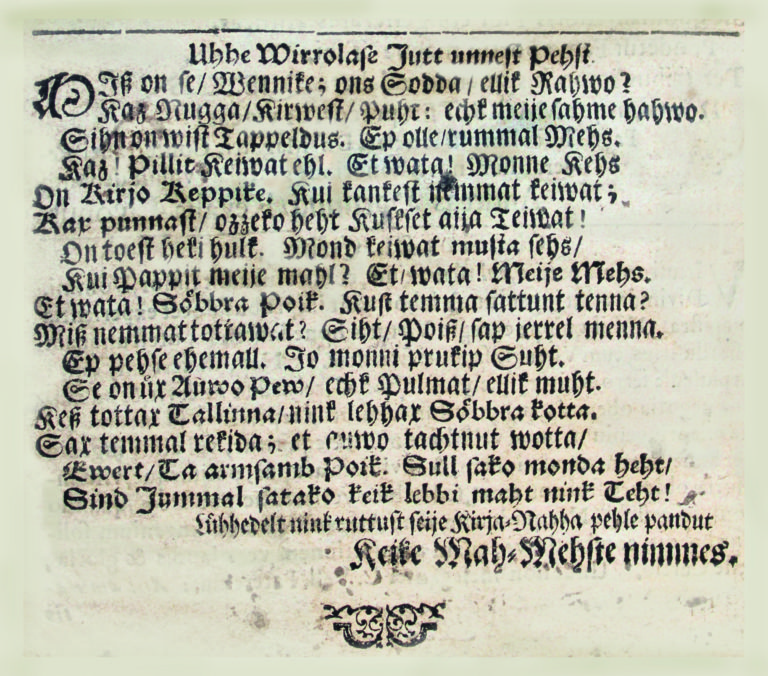 Uhhe Wirrolase Jutt unnest Pehst.
Oiß on se/ Wennike; ons Sodda/ ellik Rahwo?
Kaz Nugga/Kirwest/ puht: echk meije sahme hahwo.
Sihn on wist Tappeldus. Ep olle/rummal Mehs.
Kaz! Pillit Keiwat ehl. Et wata! Monne Kehs
On Kirjo Keppike. Kui kankest nemmat keiwat;
Kax punnast/ ozzeko heht Kuskset aija Teiwat!
On toest heki hulk. Mond keiwat musta sehs/
Kui Pappit meije mahl? Et/ wata! Meije Mehs.
Et wata! Söbbra Poik. Kust temma sattunt tenna?
Miß nemmat tottawat? Siht/ Poiß/ sap jerrel menna.
Ep pehse ehemall. Jo monni prukip Suht.
Se on üx Auwo Pew/ echk Pulmat/ ellik muht.
Keß tottax Tallinna/nink lehhax Söbbra kotta.
Sax temmal rekida; et auwo tachtnut wotta/
Ewert/Ta armsamb Poik. Sull sako monda heht/
Sind Jummal satako keik lebbi maht nink Teht!
Lühhedelt nink ruttust seije Kirja-Nahha pehle pandut
Keike Mah-Mehste nimmes.